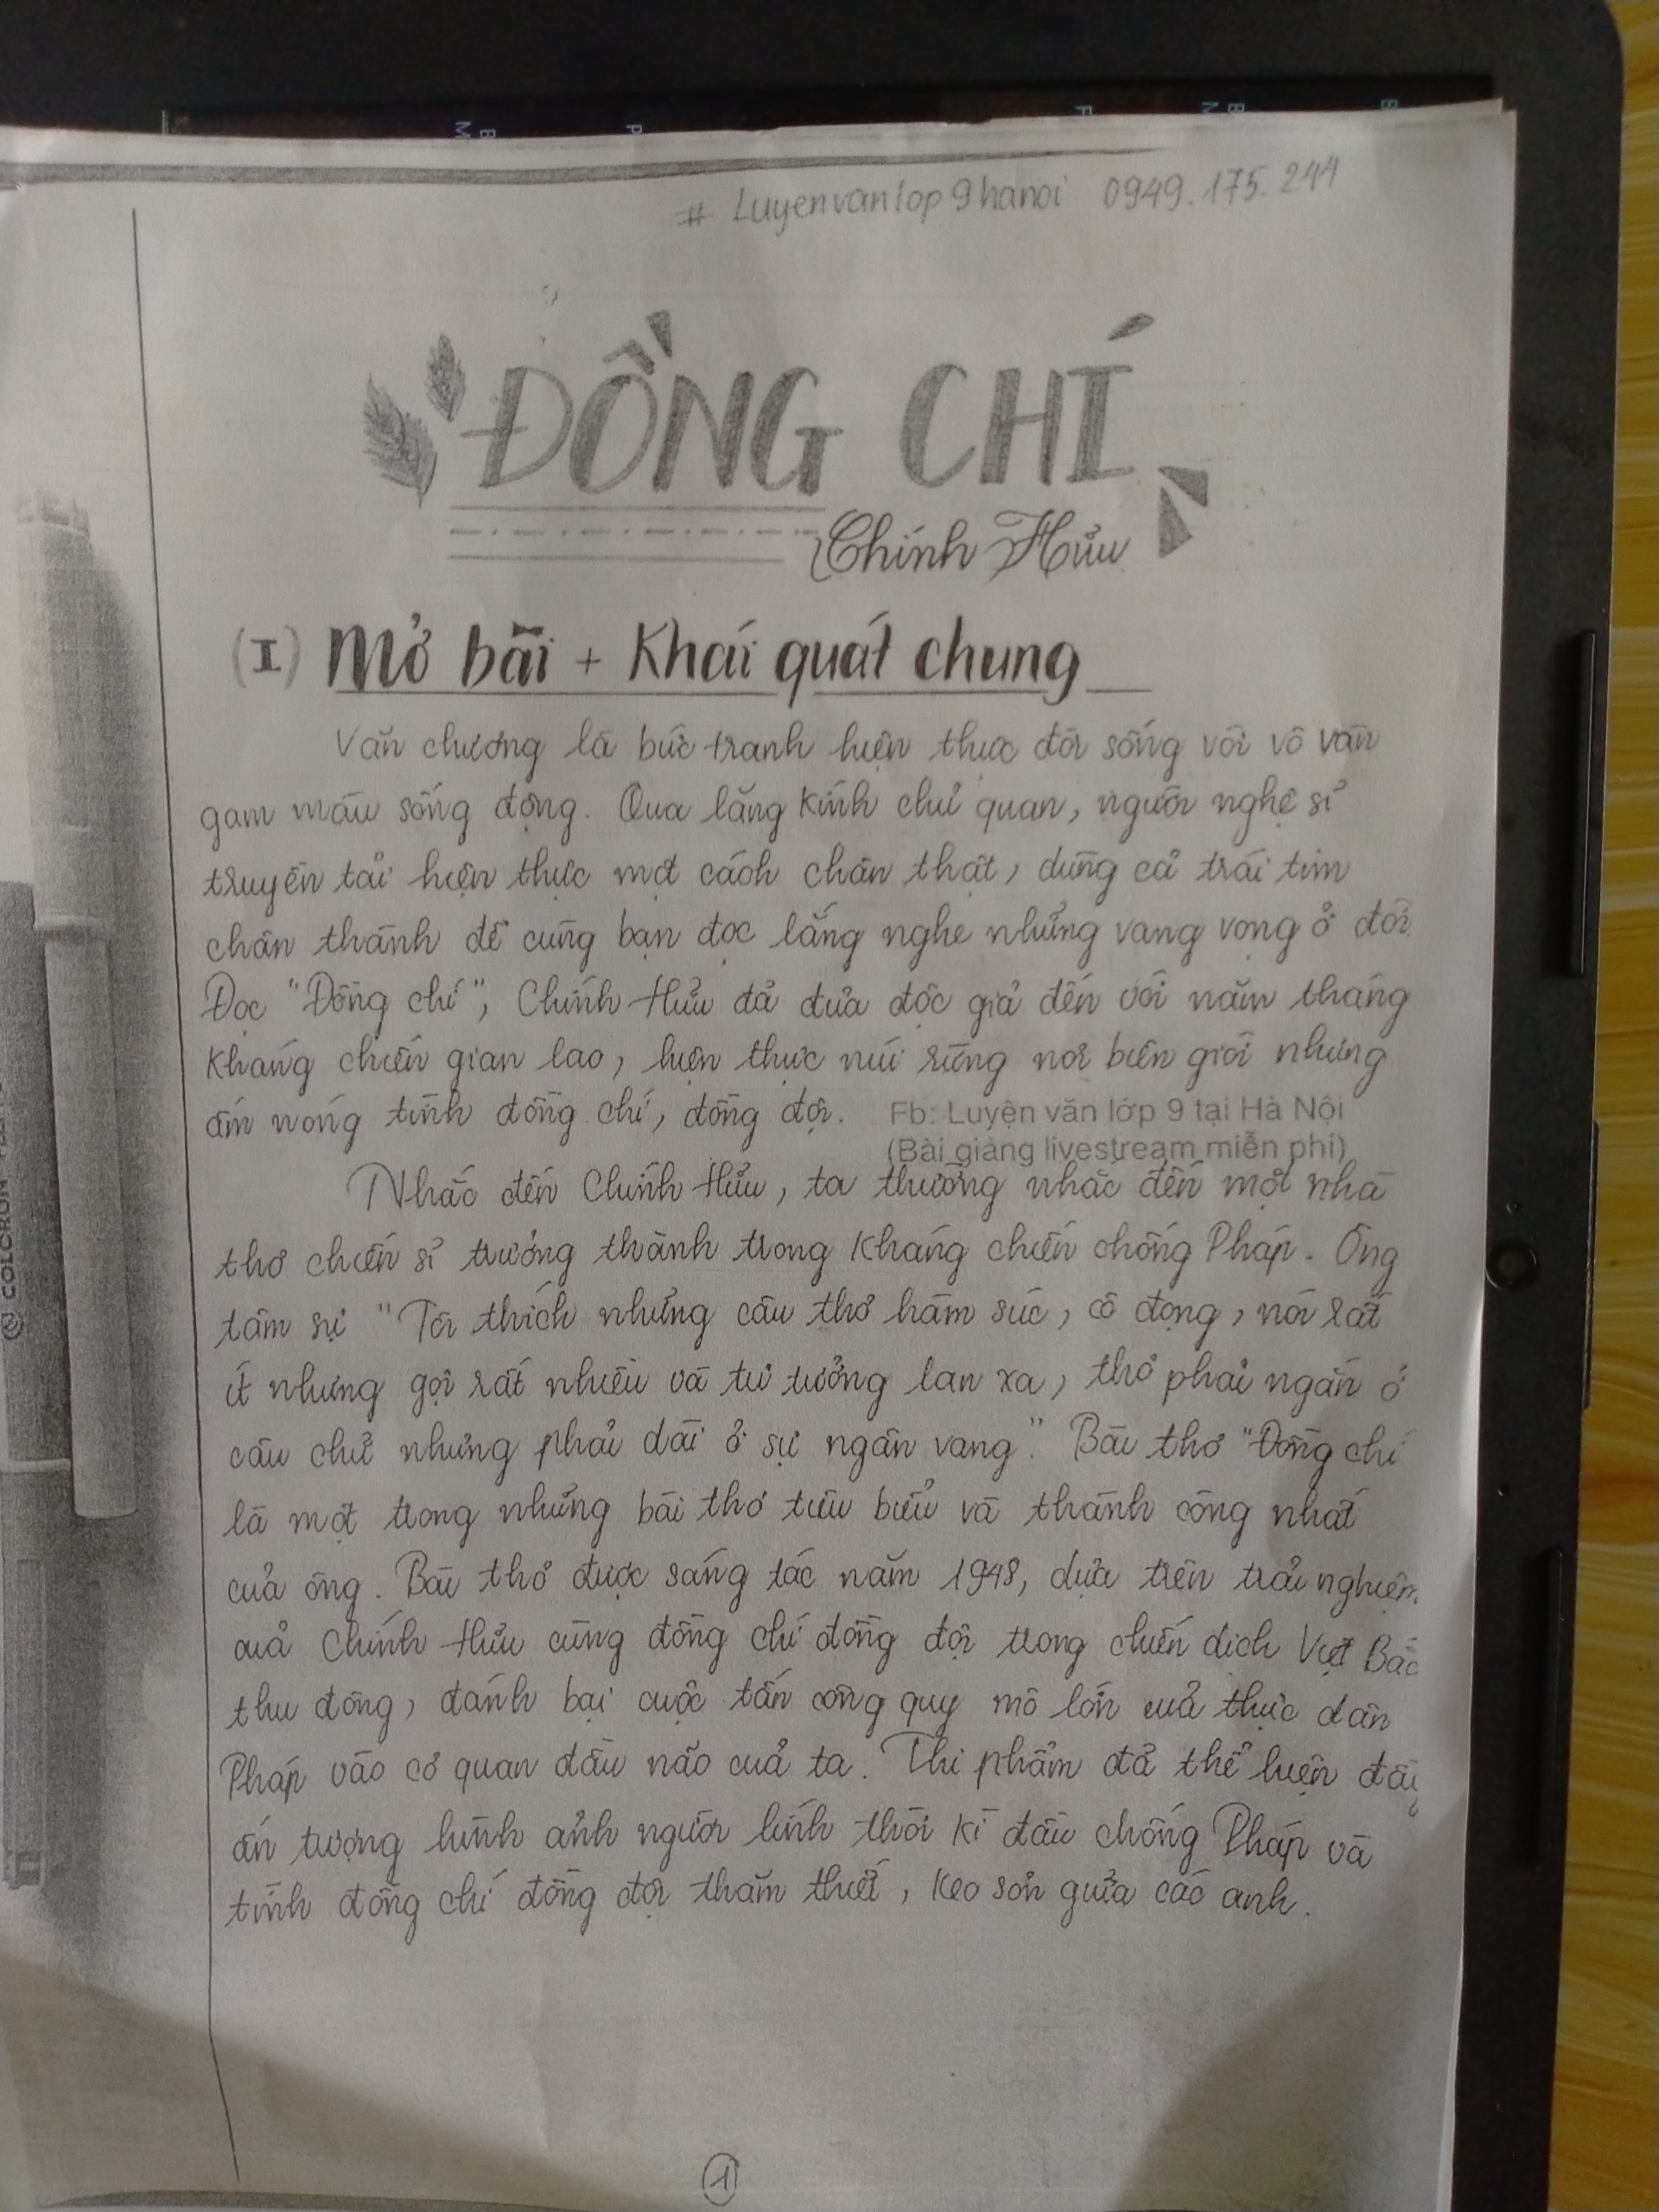 # Luyenvanlop9hanoi 0949.175.244
ĐỒNG CHÍ
Chính Hữu
(I) Mở bài + Khái quát chung
Văn chương là bức tranh hiện thực đời sống với vô vàn
gam màu sống động. Qua lăng kính chủ quan, người nghệ sĩ
truyền tải hiện thực một cách chân thật, dùng cả trái tim
chân thành để cùng bạn đọc lắng nghe những vang vọng ở đời.
Đọc "Đồng chí", Chính Hữu đã đưa độc giả đến với năm tháng
kháng chiến gian lao, hiện thực núi rừng nơi biên giới nhưng
ấm nóng tình đồng chí, đồng đội.
Fb: Luyện văn lớp 9 tại Hà Nội
(Bài giảng livestream miễn phí)
Nhắc đến Chính Hữu, ta thường nhắc đến một nhà
thơ chiến sĩ trưởng thành trong kháng chiến chống Pháp. Ông
tâm sự "Tôi thích những câu thơ hàm súc, cô đọng, nói rất
ít nhưng gợi rất nhiều và tư tưởng lan xa, thơ phải ngắn ở
câu chữ nhưng phải dài ở sự ngân vang". Bài thơ "Đồng chí
là một trong những bài thơ tiêu biểu và thành công nhất
của ông. Bài thơ được sáng tác năm 1948, dựa trên trải nghiệm
của Chính Hữu cùng đồng chí đồng đội trong chiến dịch Việt Bắc
thu đông, đánh bại cuộc tấn công quy mô lớn của thực dân
Pháp vào cơ quan đầu não của ta. Thi phẩm đã thể hiện đầy
ấn tượng hình ảnh người lính thời kì đầu chống Pháp và
tình đồng chí đồng đội thắm thiết, keo sơn giữa các anh.
1